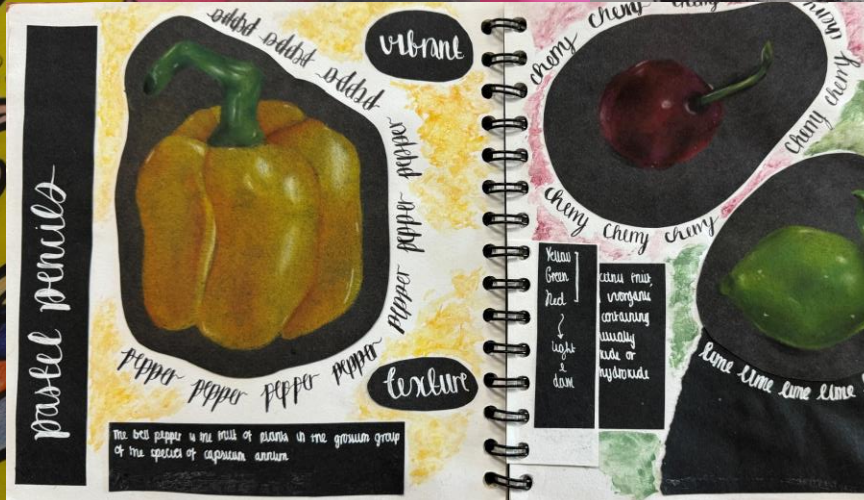 pastel pencils
pepper pepper pepper
pepper pepper pepper
pepper pepper pepper pepper
vibrant
texture
The bell pepper is the fruit of plants in the grossum group
of the species of capsicum annum
cherry cherry cherry cherry
cherry cherry cherry
cherry cherry cherry
Yellow
Green
Red
light
&
dark
citrus fruit,
inorganic
containing
usually
hydroxide
lime lime lime lime